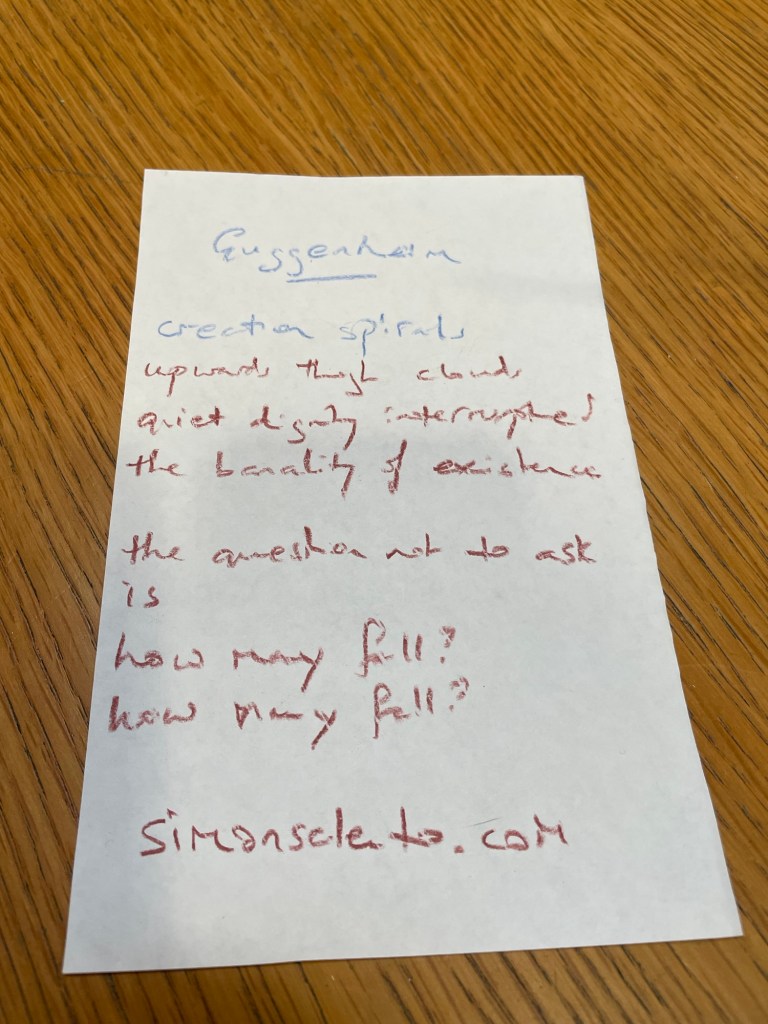 Guggenheim
creation spirals
upwards though clouds
quiet dignity interrupted
the banality of existence
the question not to ask
is
how many fall?
how many fall?